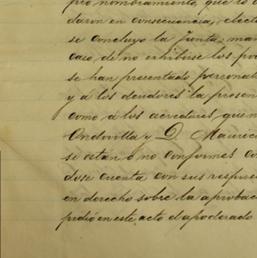 pro nombramiento, que lo
daron en consecuencia, electo
se concluyo la Junta, man
caso, de no exhibirse los pod
se han presentado personal
y á los deudores la presen
como á los acredores que no
Ondovilla y D. Maurici
se estan ó no conformes co
dose cuenta con sus respue
en derecho sobre la aproba
pidió en este acto el apoderado